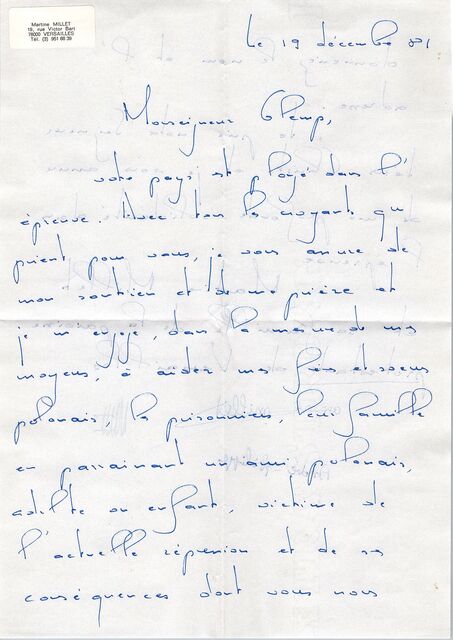 Martine MILLET
19, rue Victor Bart
78000 VERSAILLES
Tél. (3) 951 68 39
Le 19 décembre 81
Monseigneur Glemp,
votre pays est plongé dans l'
épreuve. Avec tous les croyants qui
prient pour vous, je vous assure de
mon soutien et de ma prière et
je m'engage, dans la mesure de mes
moyens, à aider mes frères et soeurs
polonais, les prisonniers, leur famille
en parrainant un ami polonais,
adulte ou enfant, victime de
l'actuelle répression et de ses
conséquences dont vous nous